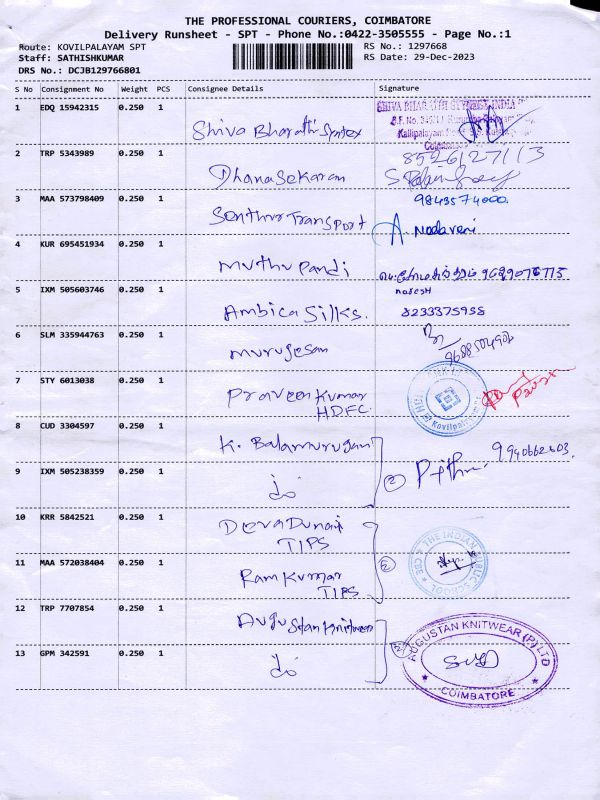 THE PROFESSIONAL COURIERS, COIMBATORE
Delivery Runsheet - SPT - Phone No.:0422-3505555 - Page No.:1
Route: KOVILPALAYAM SPT
RS No.: 1297668
Staff: SATHISHKUMAR
RS Date: 29-Dec-2023
DRS No.: DCJB129766801
S No Consignment No Weight PCS Consignee Details Signature
1 EDQ 15942315 0.250 1 Shiva Bharathi Syntex
2 TRP 5343989 0.250 1 Dhanasekaran 8526127113
3 MAA 573798409 0.250 1 Senthur Transport 9843574000.
4 KUR 695451934 0.250 1 Muthu Pandi
5 IXM 505603746 0.250 1 Ambica Silks. 8233375958
6 SLM 335944763 0.250 1 Murugesan
7 STY 6013038 0.250 1 Praveen Kumar
HDFC
8 CUD 3304597 0.250 1 K. Balamurugan
9 IXM 505238359 0.250 1 do (2)
10 KRR 5842521 0.250 1
TIPS
11 MAA 572038404 0.250 1 Ram Kumar (2) THE INDIAN PUBLIC SCHOOL CBE
TIPS
12 TRP 7707854 0.250 1 Augustan Knitwear
13 GPM 342591 0.250 1 do (2) AUGUSTAN KNITWEAR (P) LTD
COIMBATORE